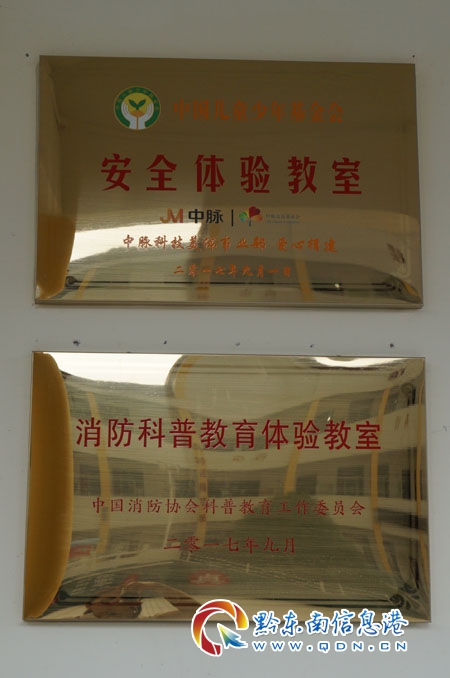 中国儿童少年基金会
安全体验教室
JM中脉
中脉科技苏州事业部 爱心捐建
二零一七年九月一日
消防科普教育体验教室
中国消防协会科普教育工作委员会
二〇一七年九月
黔东南信息港
WWW.QDN.CN